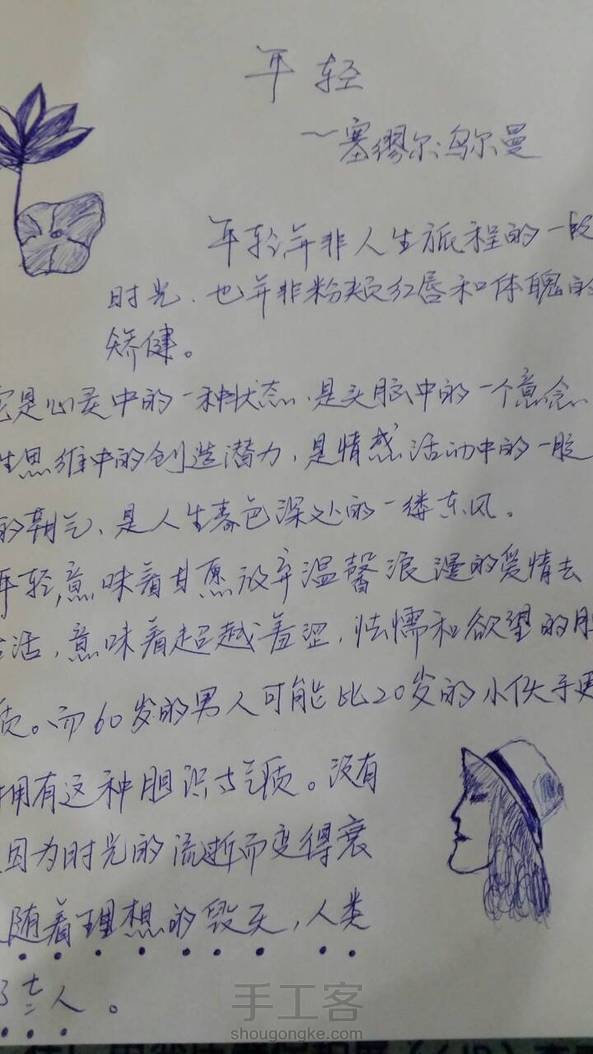 年轻
~塞缪尔·乌尔曼
年轻并非人生旅程的一段
时光,也并非粉颊红唇和体魄的
矫健。
它是心灵中的一种状态,是头脑中的一个意念,
性思维中的创造潜力,是情感活动中的一股
的朝气,是人生春色深处的一缕东风。
年轻,意味着甘愿放弃温馨浪漫的爱情去
生活,意味着超越羞涩,怯懦和欲望的胆
质。而60岁的男人可能比20岁的小伙子更
拥有这种胆识与气质。没有
因为时光的流逝而变得衰
随着理想的毁灭,人类
了老人。
手工客
shougongke.com